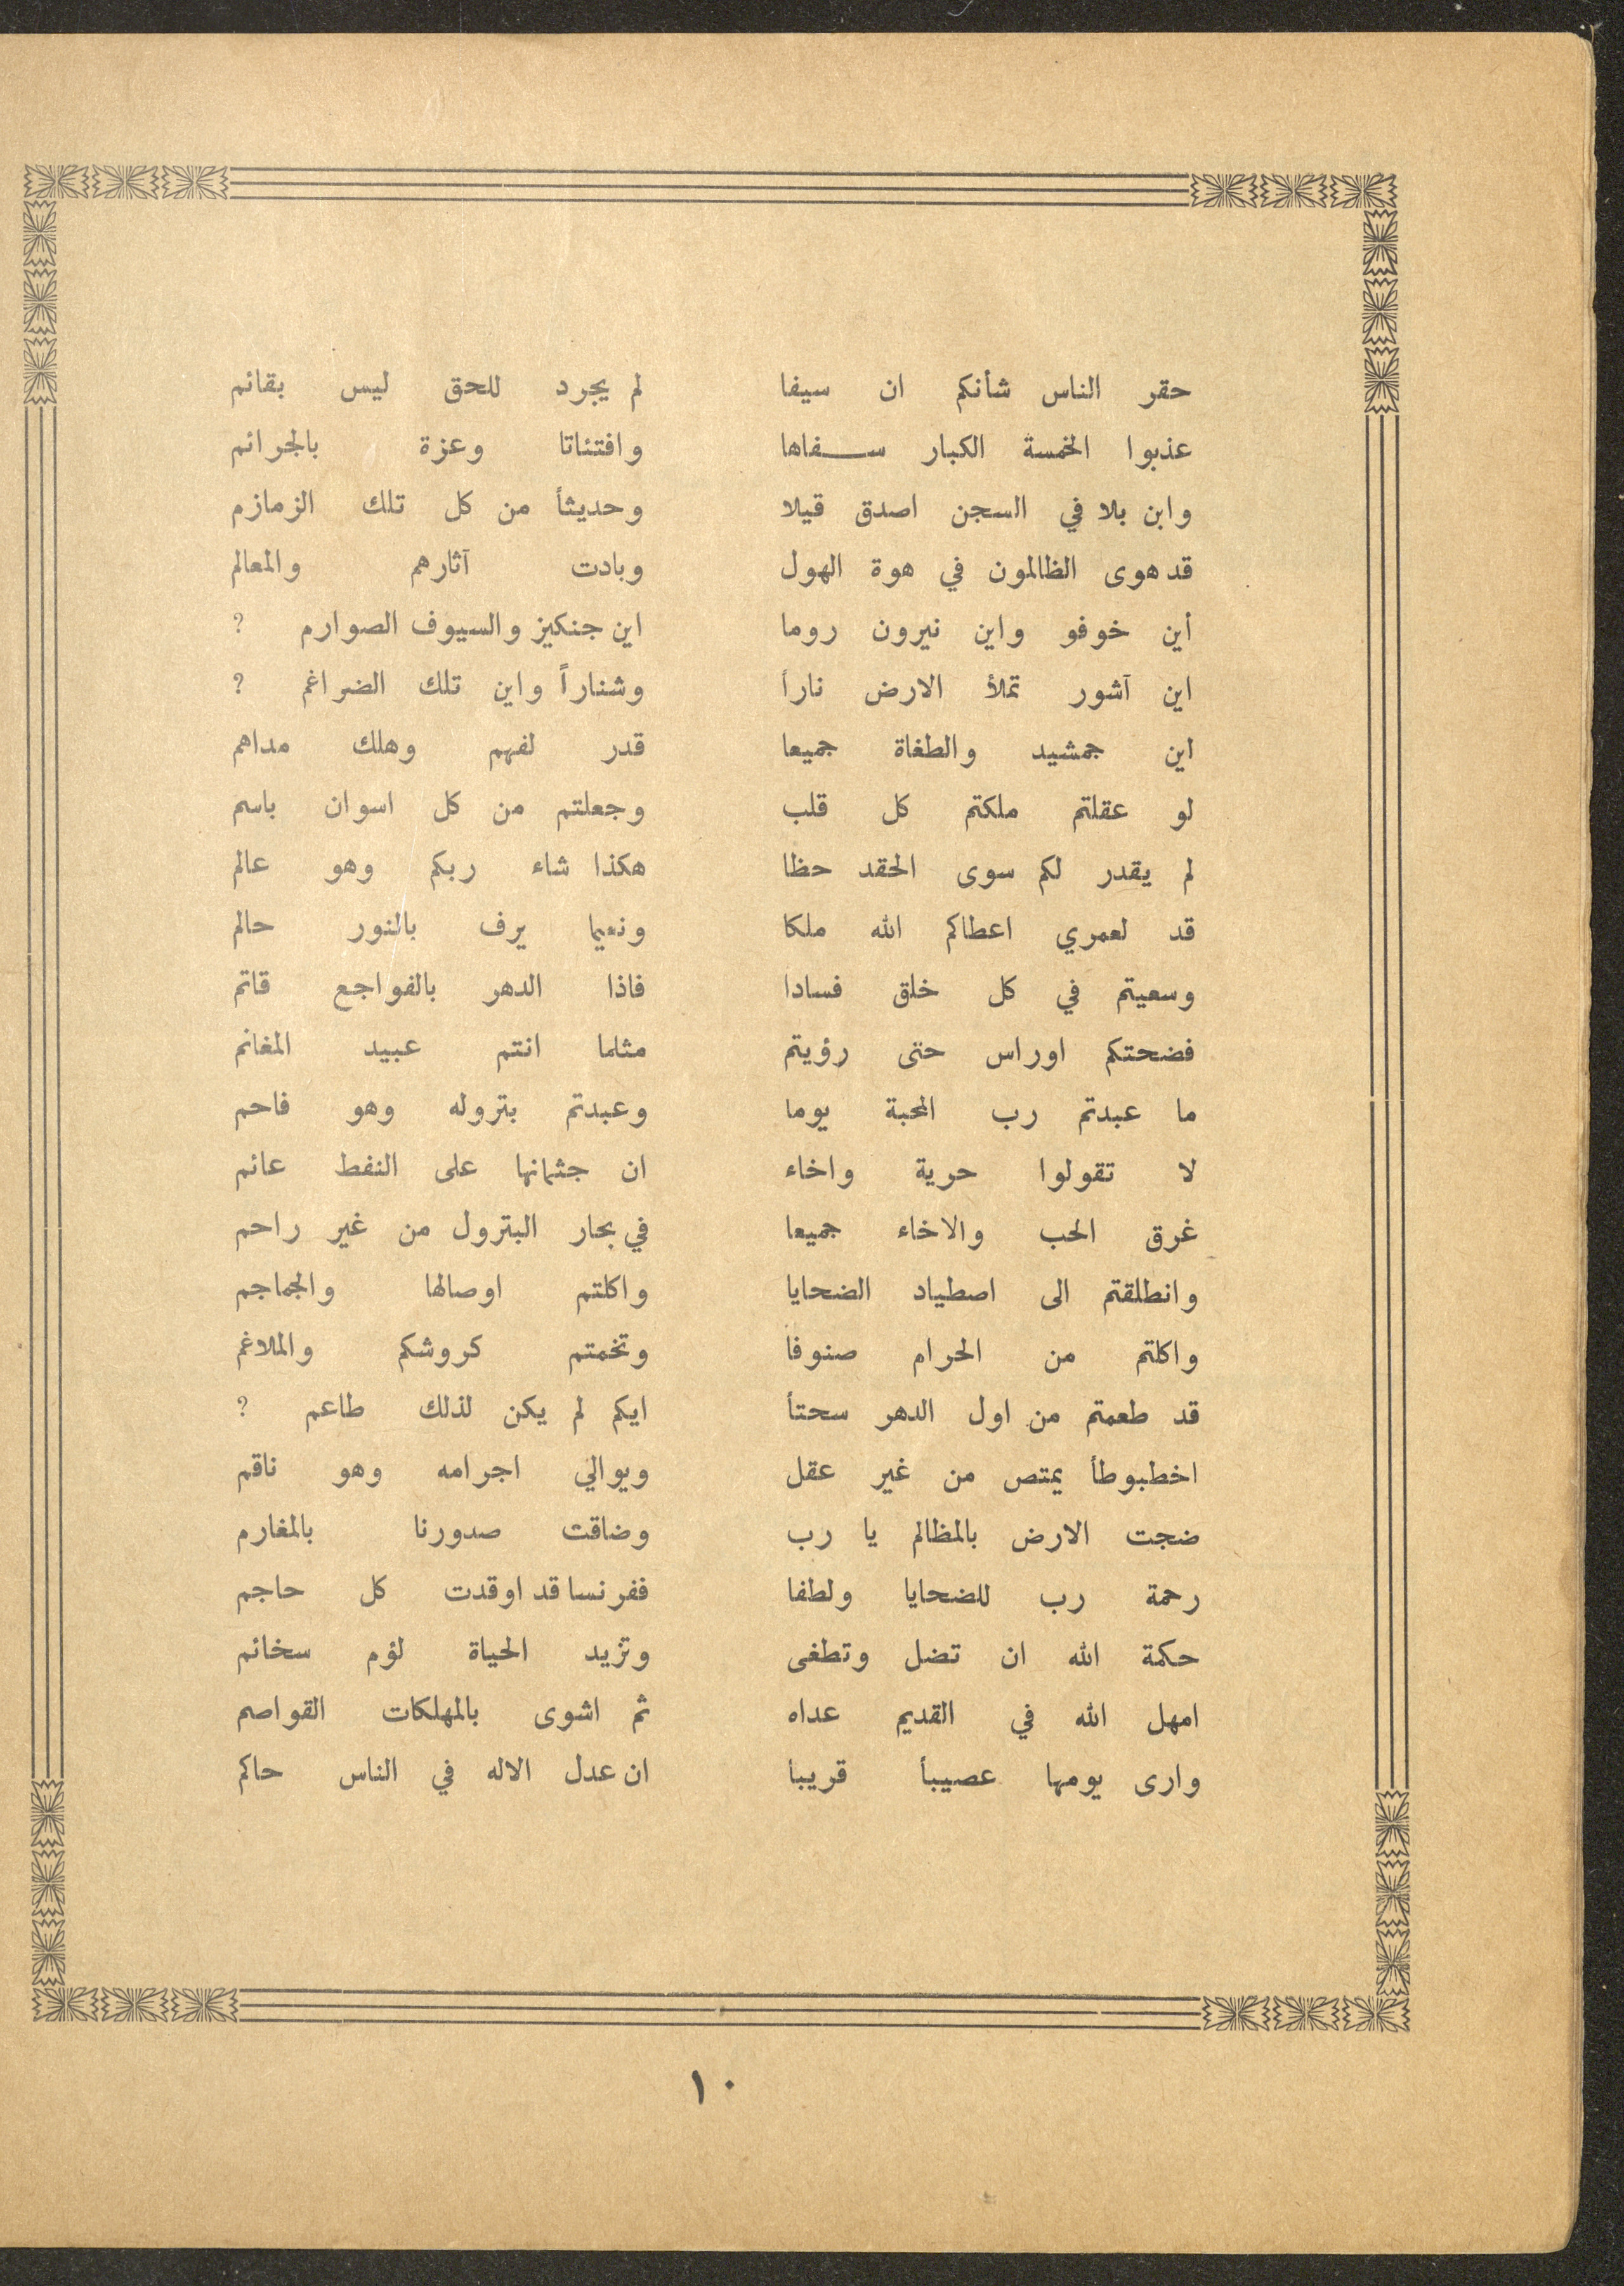 حقر الناس شأنكم ان سيفا لم يجرد للحق ليس بقائم
عذبوا الخمسة الكبار سفاها وافتئاتا وعزة بالجرائم
وابن بلا في السجن اصدق قيلا وحديثاً من كل تلك الزمازم
قد هوى الظالمون في هوة الهول وبادت آثارهم والمعالم
أين خوفو واين نيرون روما اين جنكيز والسيوف الصوارم ؟
اين آشور تملأ الارض ناراً وشناراً واين تلك الضراغم ؟
اين جمشيد والطغاة جميعا قدر لفهم وهلك مداهم
لو عقلتم ملكتم كل قلب وجعلتم من كل اسوان باسم
لم يقدر لكم سوى الحقد حظا هكذا شاء ربكم وهو عالم
قد لعمري اعطاكم الله ملكا ونعيما يرف بالنور حالم
وسعيتم في كل خلق فسادا فاذا الدهر بالفواجع قاتم
فضحتكم اوراس حتى رؤيتم مثلما انتم عبيد المغانم
ما عبدتم رب المحبة يوما وعبدتم بتروله وهو فاحم
لا تقولوا حرية واخاء ان جثمانها على النفط عائم
غرق الحب والاخاء جميعا في بحار البترول من غير راحم
وانطلقتم الى اصطياد الضحايا واكلتم اوصالها والجماجم
واكلتم من الحرام صنوفا وتخمتم كروشكم والملاغم
قد طعمتم من اول الدهر سحتاً ايكم لم يكن لذلك طاعم ؟
اخطبوطاً يمتص من غير عقل ويوالي اجرامه وهو ناقم
ضجت الارض بالمظالم يا رب وضاقت صدورنا بالمغارم
رحمة رب للضحايا ولطفا ففرنسا قد اوقدت كل حاجم
حكمة الله ان تضل وتطغى وتزيد الحياة لؤم سخائم
امهل الله في القديم عداه ثم اشوى بالمهلكات القواصم
وارى يومها عصيباً قريبا ان عدل الاله في الناس حاكم
١٠